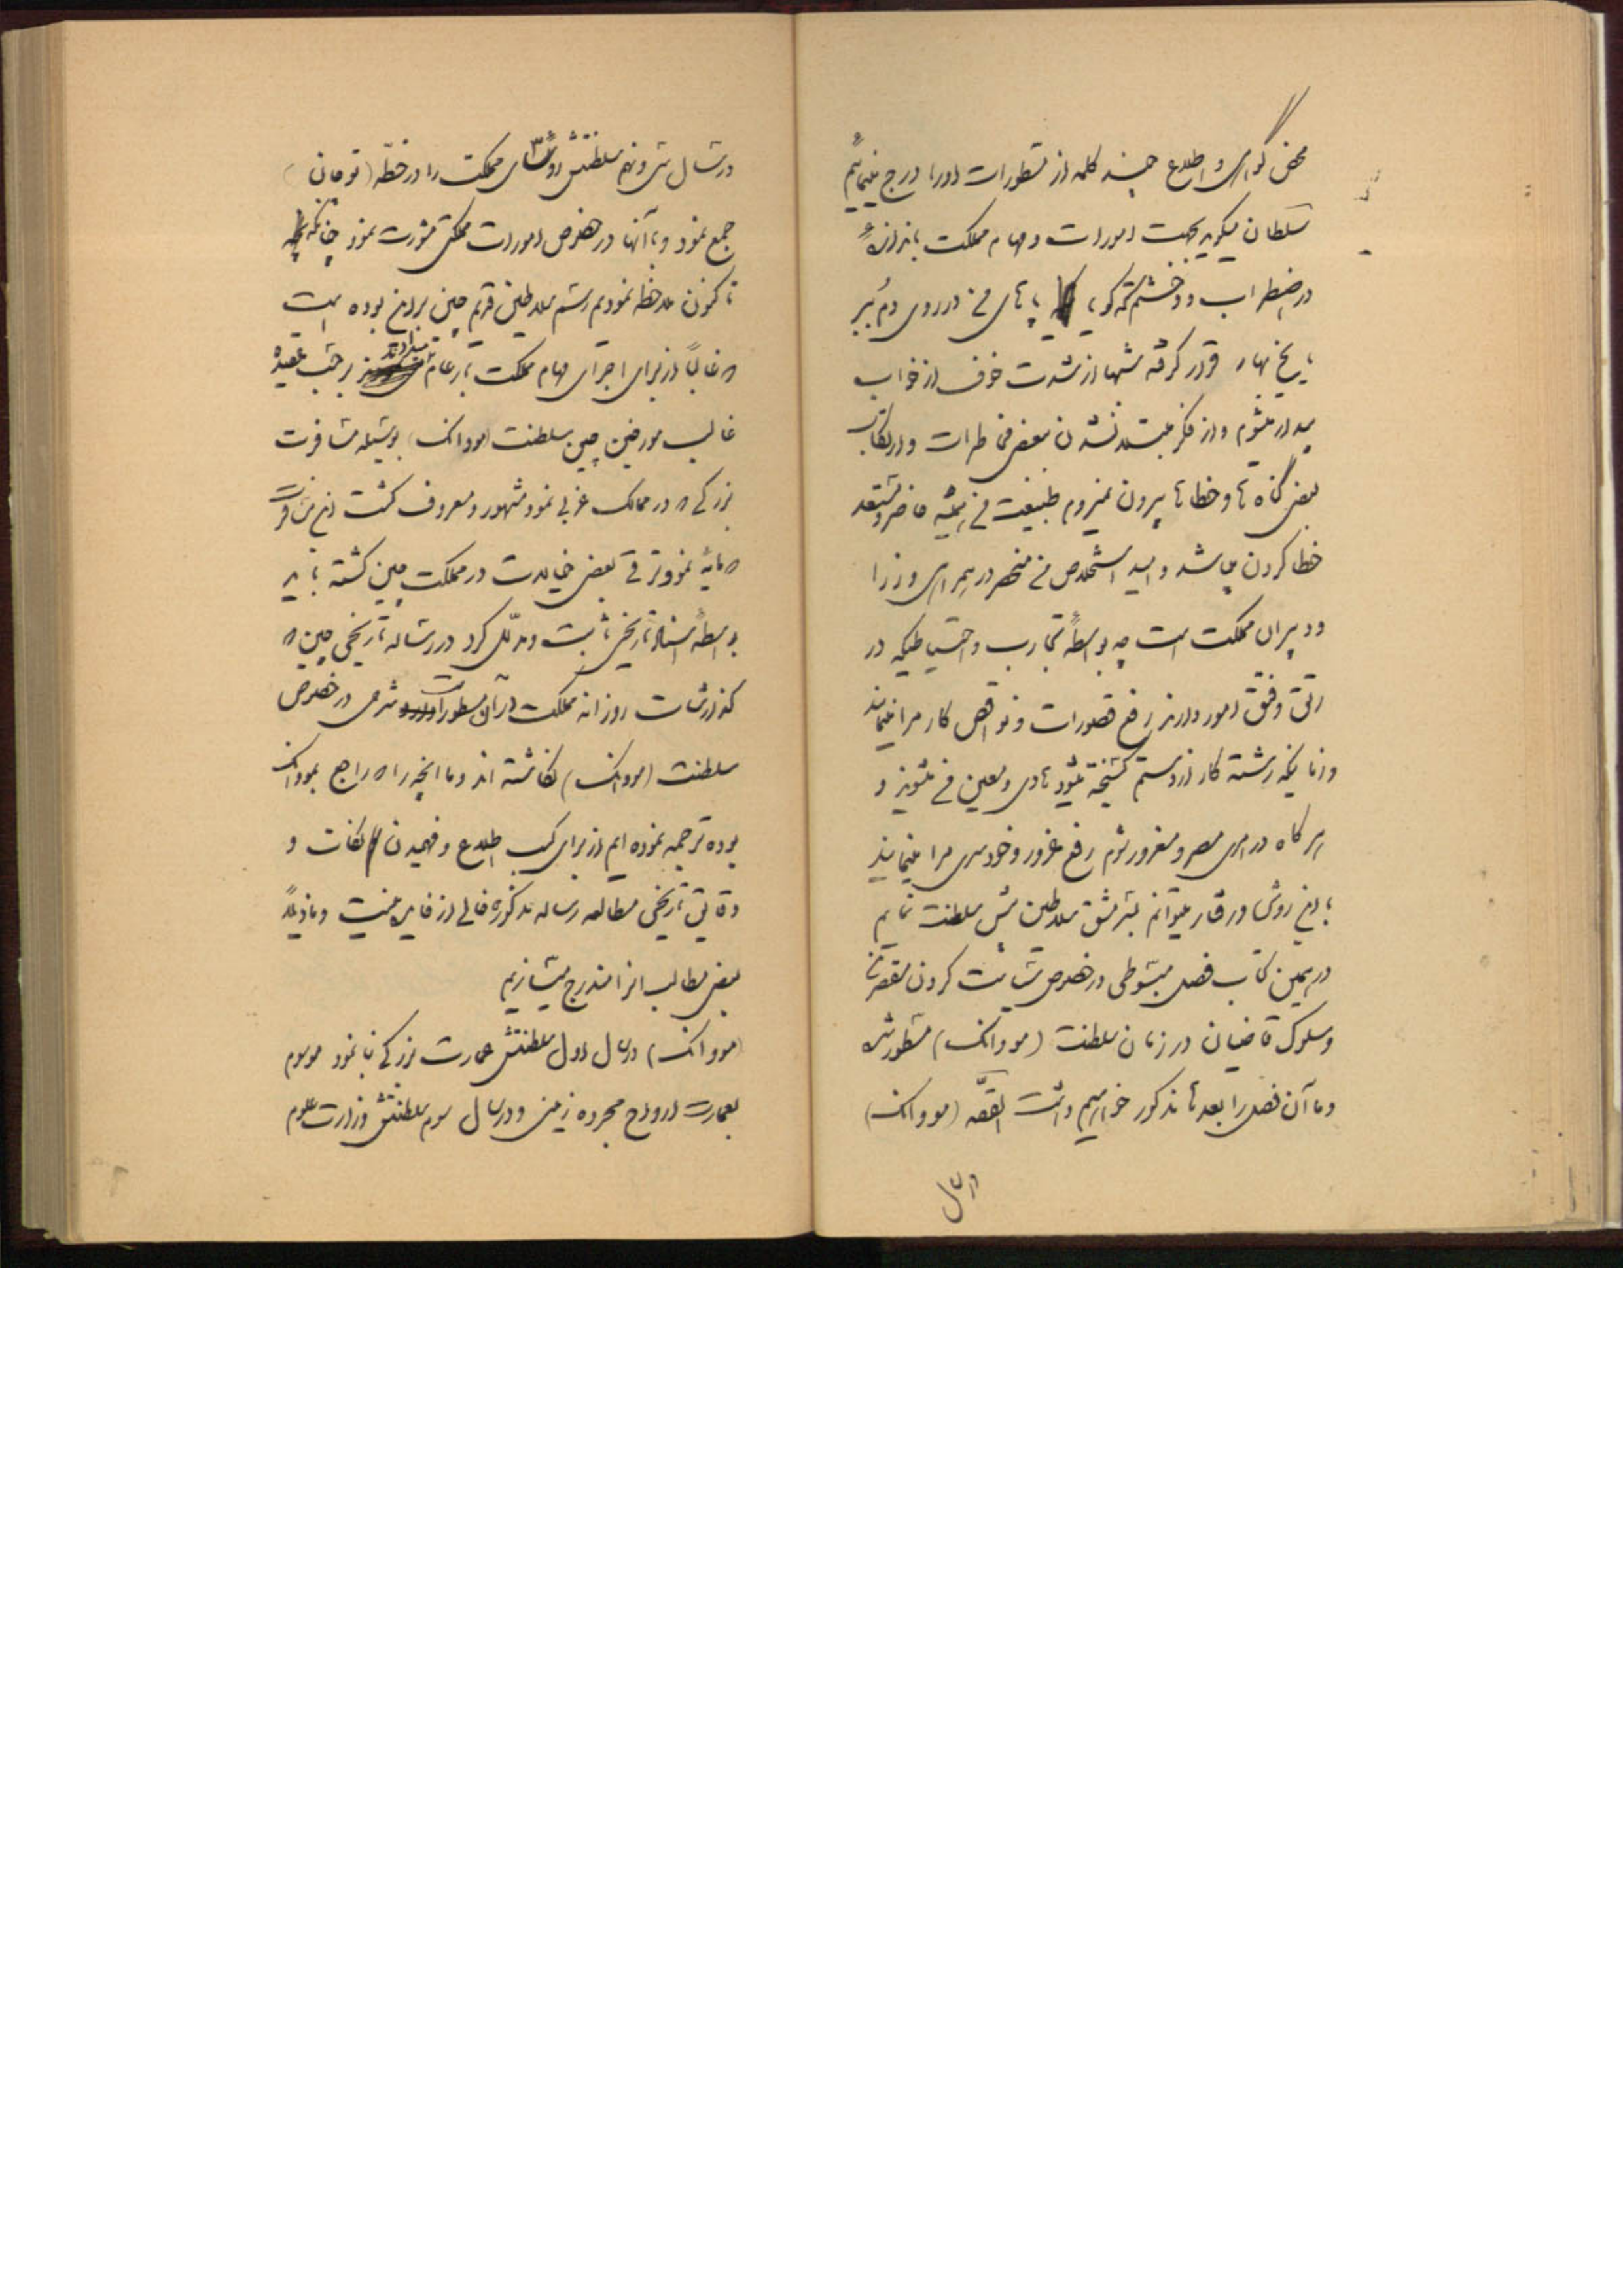 محض گواهی و اطلاع چند کلمه از مسطورات او را درج مینمائیم
سلطان میگوید بجهت امورات و مهام مملکت باندازهٔ
در اضطراب و وحشتم که گویا پاهای من در روی دم ببر
یا یخ بهار قرار گرفته شبها از شدت خوف از خواب
بیدار میشوم و از فکر مبتلا نشدن ببعض مخاطرات و ارتکاب
بعض گناه ها و خطاها بیرون نمیروم طبیعت من همیشه حاضر و مستعد
خطا کردن میباشد و امید استخلاص من منحصر در همراهی وزرا
و دبیران مملکت است چه بواسطهٔ تجارب و احتیاطیکه در
رتق و فتق امور دارند رفع قصورات و نواقص کار مرا مینمایند
و زمانیکه رشته کار از دستم گسیخته میشود هادی و معین من میشوند و
هر گاه در امری مصر و مغرور شوم رفع غرور و خودسری مرا مینمایند
با این روش و رفتار میتوانم بسرمشق سلاطین پیش سلطنت نمایم
در همین کتاب فصل مبسوطی در خصوص سیاست کردن مقصرین
و سلوک قاضیان در زمان سلطنت (مووانک) مسطور شده
و ما آن فصل را بعدها مذکور خواهیم داشت القصّه (مووانک)
در سال
در سال سی و نهم سلطنتش رؤسای مملکت را در خطّه (توفان)
جمع نمود و با آنها در خصوص امورات مملکتی مشورت نمود چنانکه
تا کنون ملاحظه نمودیم رسم سلاطین قدیم چین بر این بوده است
که غالباً از برای اجرای مهام مملکت بار عام میدادند بر حسب عقیده
غالب مورخین چین سلطنت (مووانک) بوسیله مسافرت
بزرگی که در ممالک غربی نمود مشهور و معروف گشت این مسافرت
که مایه نمو و ترقی بعض خیالات در مملکت چین گشته باید
بواسطهٔ اسناد تاریخی ثابت و مدلّل کرد در رساله تاریخی چین که
گذارشات روزانه مملکت در آن مسطور است شرحی در خصوص
سلطنت (مووانک) نگاشته اند و ما انچه را که راجع بمووانک
بوده ترجمه نموده ایم از برای کسب اطلاع و فهمیدن نکات و
دقایق تاریخی مطالعه رساله مذکوره خالی از فایده نیست و ما ذیلاً
بعض مطالب انرا مندرج میسازیم
(مووانک) در سال اول سلطنتش عمارت بزرگی بنا نمود موسوم
بعمارت ارواح مجرده زمینی و در سال سوم سلطنتش وزارت علوم